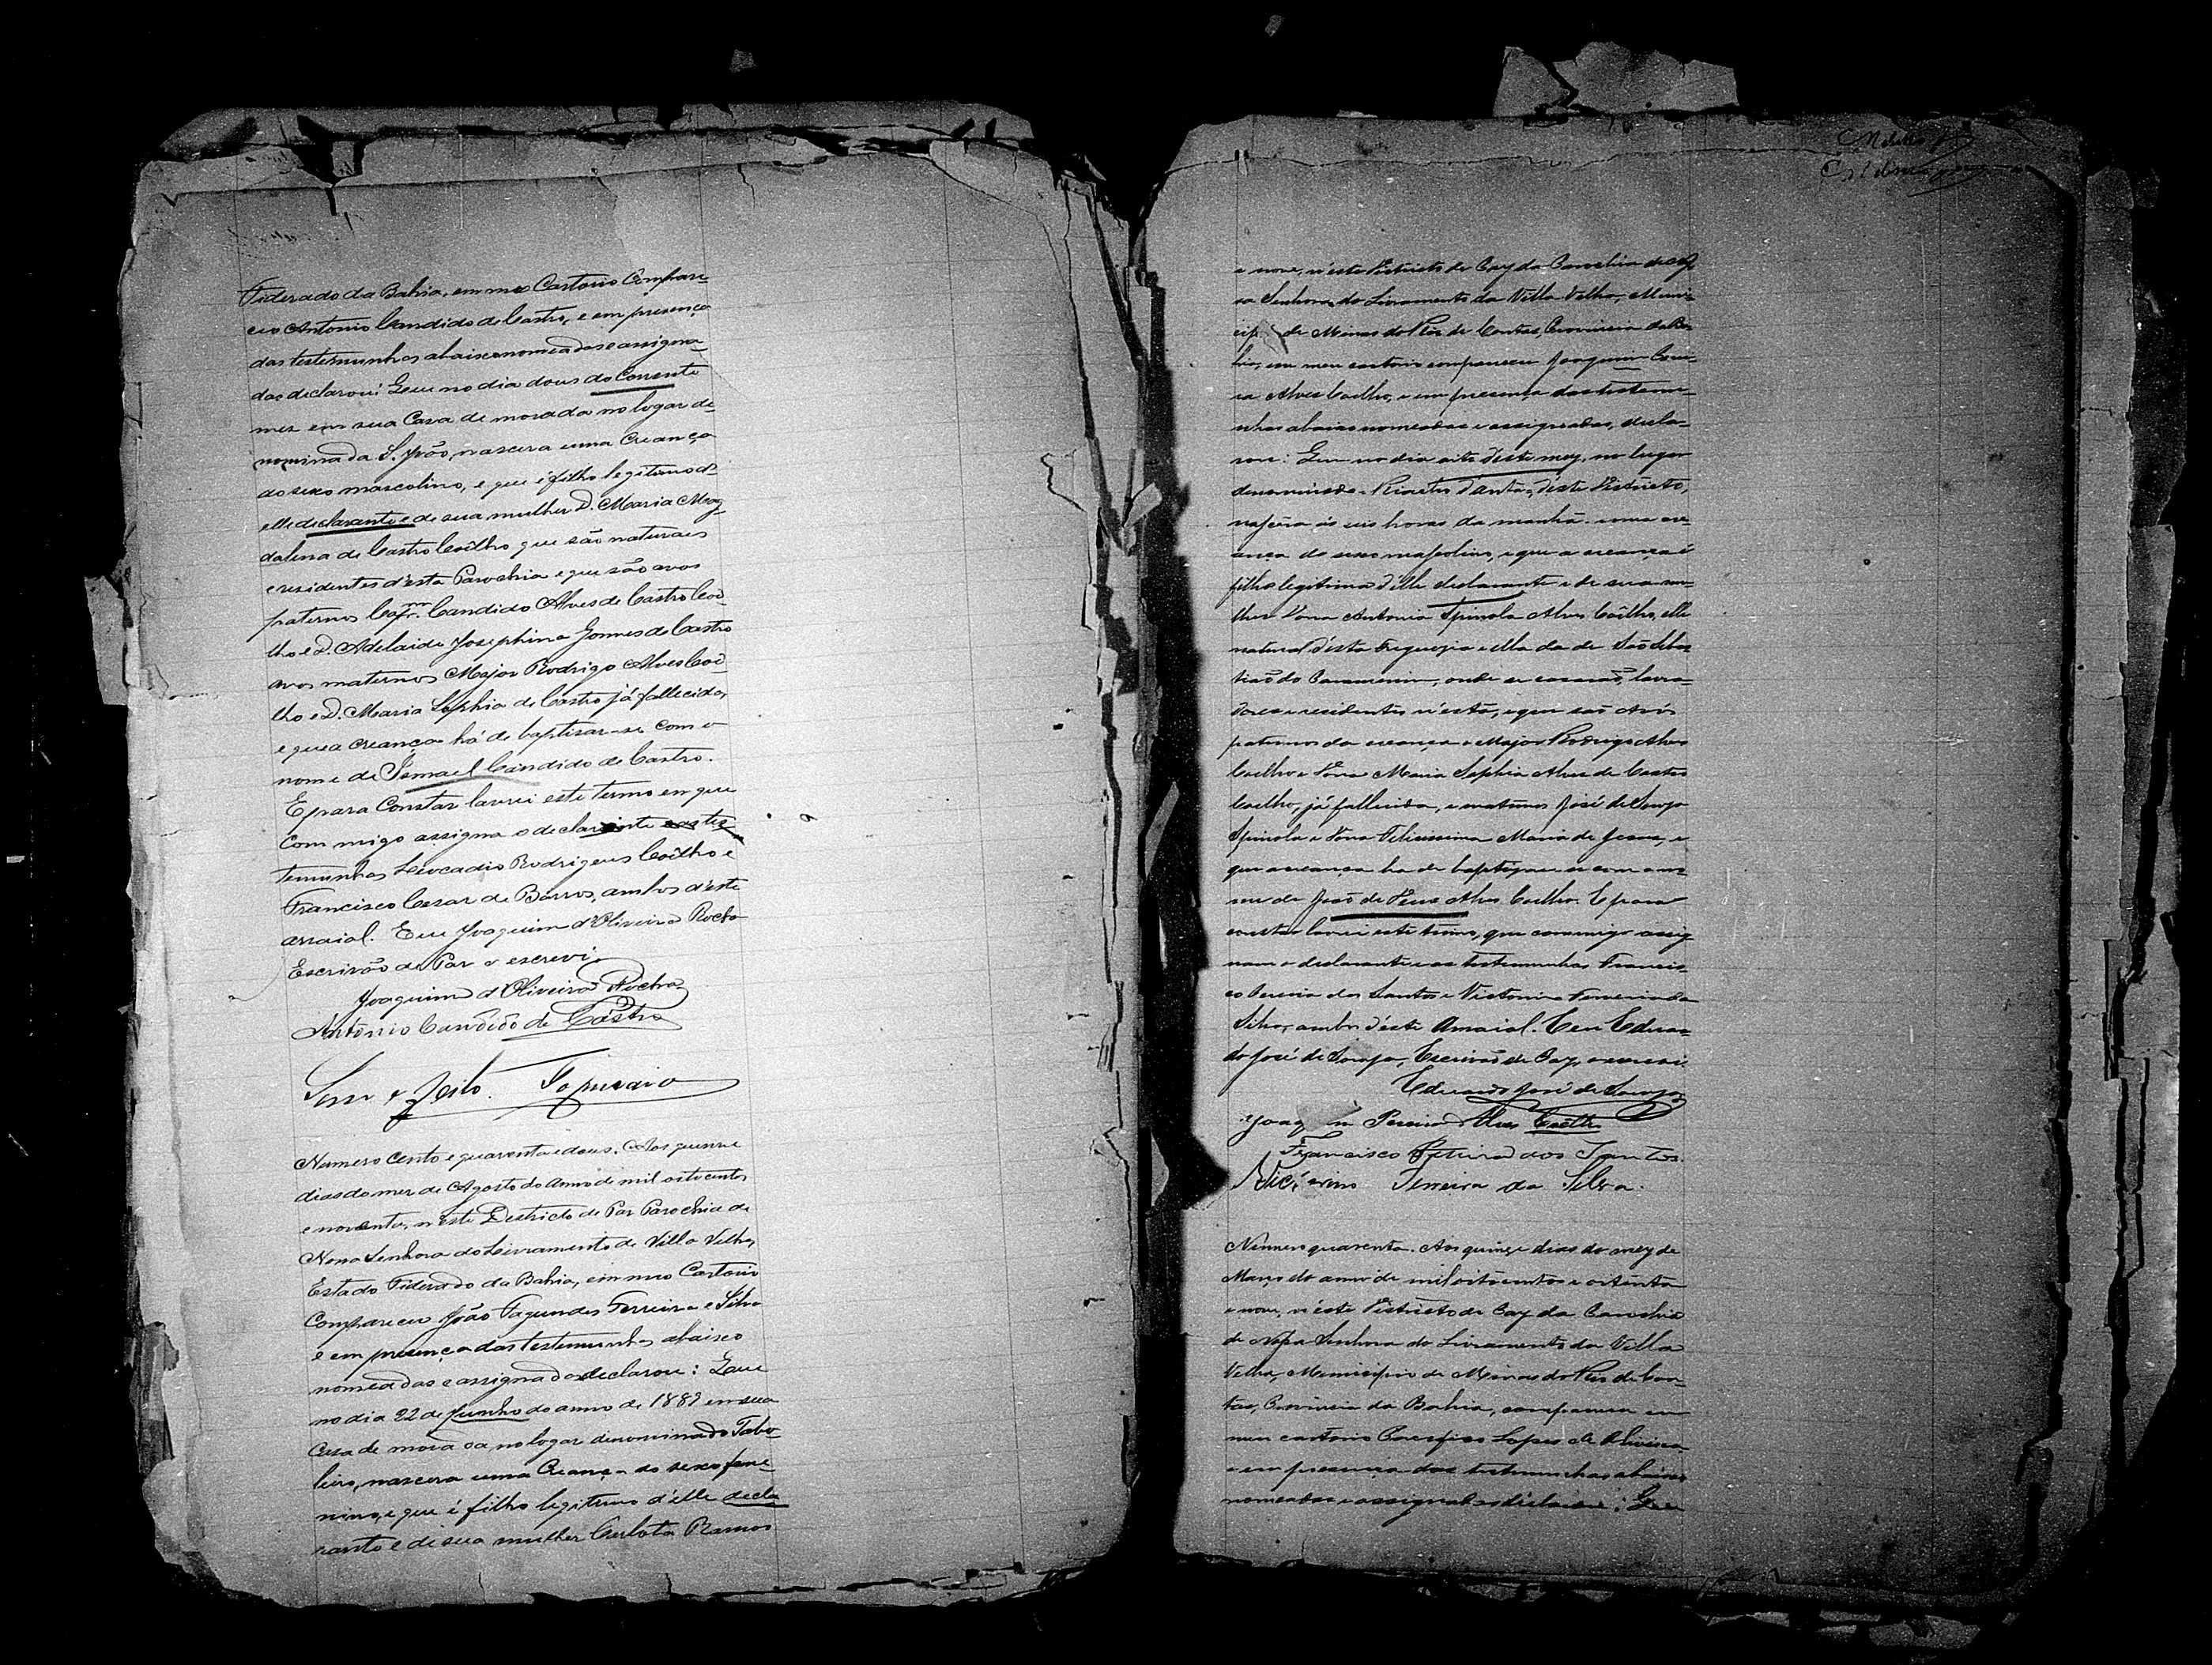 Federado da Bahia, em meo Cartorio Compare-
ceo Antonio Candido de Castro, e em presença
das testemunhas abaixo nomeadas e assigna-
das declarou: Que no dia dous do Corrente
mez em sua Casa de morada no logar de-
nominada S. João, nascera uma Creança
do sexo mascolino, e que é filho legitimo d'
elle declarante e de sua mulher D. Maria Mag-
dalena de Castro Coêlho que são naturaes
e residentes d'esta Parochia e que são avos
paternos Capm. Candido Alves de Castro Coê-
lho e D. Adelaide Josephina Gomes de Castro
avos maternos Major Rodrigo Alves Coê-
lho e D. Maria Sophia de Castro já fallecida,
e que a creança há de baptisar-se com o
nome de Ismael Candido de Castro.
E para Constar lavrei este termo em que
Com migo assigna o declarante e as tes-
temunhas Leocadio Rodrigues Coêlho e
Francisco Cesar de Barros, ambos d'este
arraial. Eu Joaquim d'Oliveira Rocha
Escrivão de Paz o escrevi.
Joaquim d'Oliveira Rocha
Antonio Candido de Castro
Numero Cento e quarenta e dous. Aos quinze
dias do mez de Agosto do anno de mil oitocentos
e noventa, n'este Destricto de Paz Parochia de
Nossa Senhora do Livramento de Villa Velha,
Estado Federado da Bahia, em meo Cartorio
Compareceu João Fagundes Ferreira e Silva
e em presença das testemunhas abaixo
nomeadas e assignadas declarou: Que
no dia 22 de Junho do anno de 1889 em sua
Casa de morada no logar denominado Tabo-
leiro, nascera uma Creança do sexo feme-
nino, e que é filho legitimo d'elle decla-
rante e de sua mulher Carlota Ramos
e nove, n'este Districto de Paz da Parochia de Nos-
sa Senhora do Livramento da Villa Velha, Muni-
cip de Minas do Rio de Contas, Provincia da Ba-
hia, em meu cartorio compareceu Joaquim Perei-
ra Alves Coelho, e em presença das testemu-
nhas abaixo nomeadas e assignadas, decla-
rou: Que no dia oito deste mez, no lugar
denominado Riacho d'Anta, d'este Districto,
nascêra ás seis horas da manhã uma cre-
ança do sexo masculino, e que a creança é
filho legitimo d'elle declarante e de sua mu-
lher Dona Antonia Spinola Alves Coêlho, elle
natural d'esta Freguezia e ella da de São Sebas-
tião do, onde se casarão, lavra-
dores e residentes n'esta, e que são Avós
paternos da creança o Major Rodrigo Alves
Coelho e Dona Maria Sophia Alves de Castro
Coelho, já fallecida, e maternos José de Souza
Spinola e Dona Felicissima Maria de Jesus, e
que a creança ha de baptizar-se com o no-
me de João de Deus Alves Coelho. E para
constar lavrei este termo, que commigo assig
nam o declarante e as testemunhas Francis-
co Pereira dos Santos e Victorino Ferreira da
Silva, ambos d'este Arraial. Eu Eduar-
do José de Souza, Escrivão de Paz, o escrevi.
Eduardo José de Souza
Joaq m Pereira Alves Coelho
Francisco Pereira dos Santos.
Victorino Ferreira da Silva.
Numero quarenta. Aos quinze dias do mez de
Março do anno de mil oitocentos e oitenta
e nove, n'este Districto de Paz da Parochia
de Nossa Senhora do Livramento da Villa
Velha, Municipio de Minas do Rio de Con-
tas, Provincia da Bahia, compareceu em
meu cartorio Lopes de Oliveira
e em presença das testemunhas abaixo
nomeadas e assignadas declarou: Que